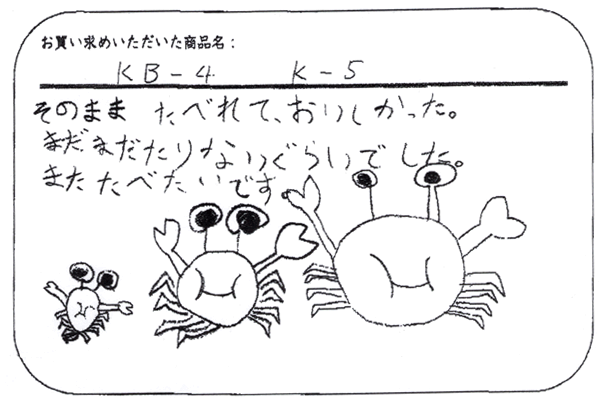 お買い求めいただいた商品名：
KB-4 K-5
そのまま たべれて、おいしかった。
まだまだたりないぐらいでした。
またたべたいです。